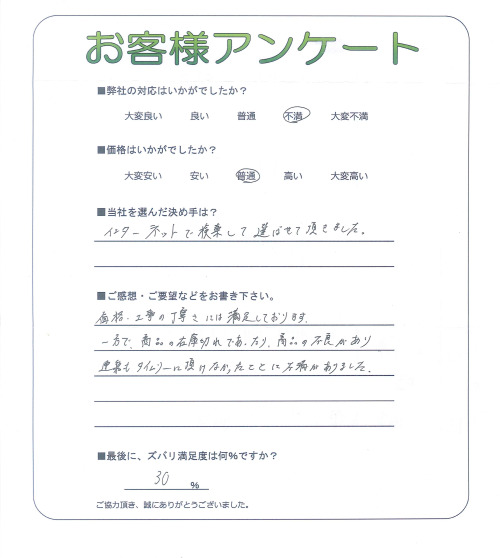 お客様アンケート
■弊社の対応はいかがでしたか？
大変良い 良い 普通 不満 大変不満
■価格はいかがでしたか？
大変安い 安い 普通 高い 大変高い
■当社を選んだ決め手は？
インターネットで検索して選ばせて頂きました。
■ご感想・ご要望などをお書き下さい。
価格・工事の丁寧さには満足しております。
一方で、商品の在庫切れであったり、商品の不良があり
連絡もタイムリーに頂けなかったことに不満がありました。
■最後に、ズバリ満足度は何%ですか？
30 %
ご協力頂き、誠にありがとうございました。